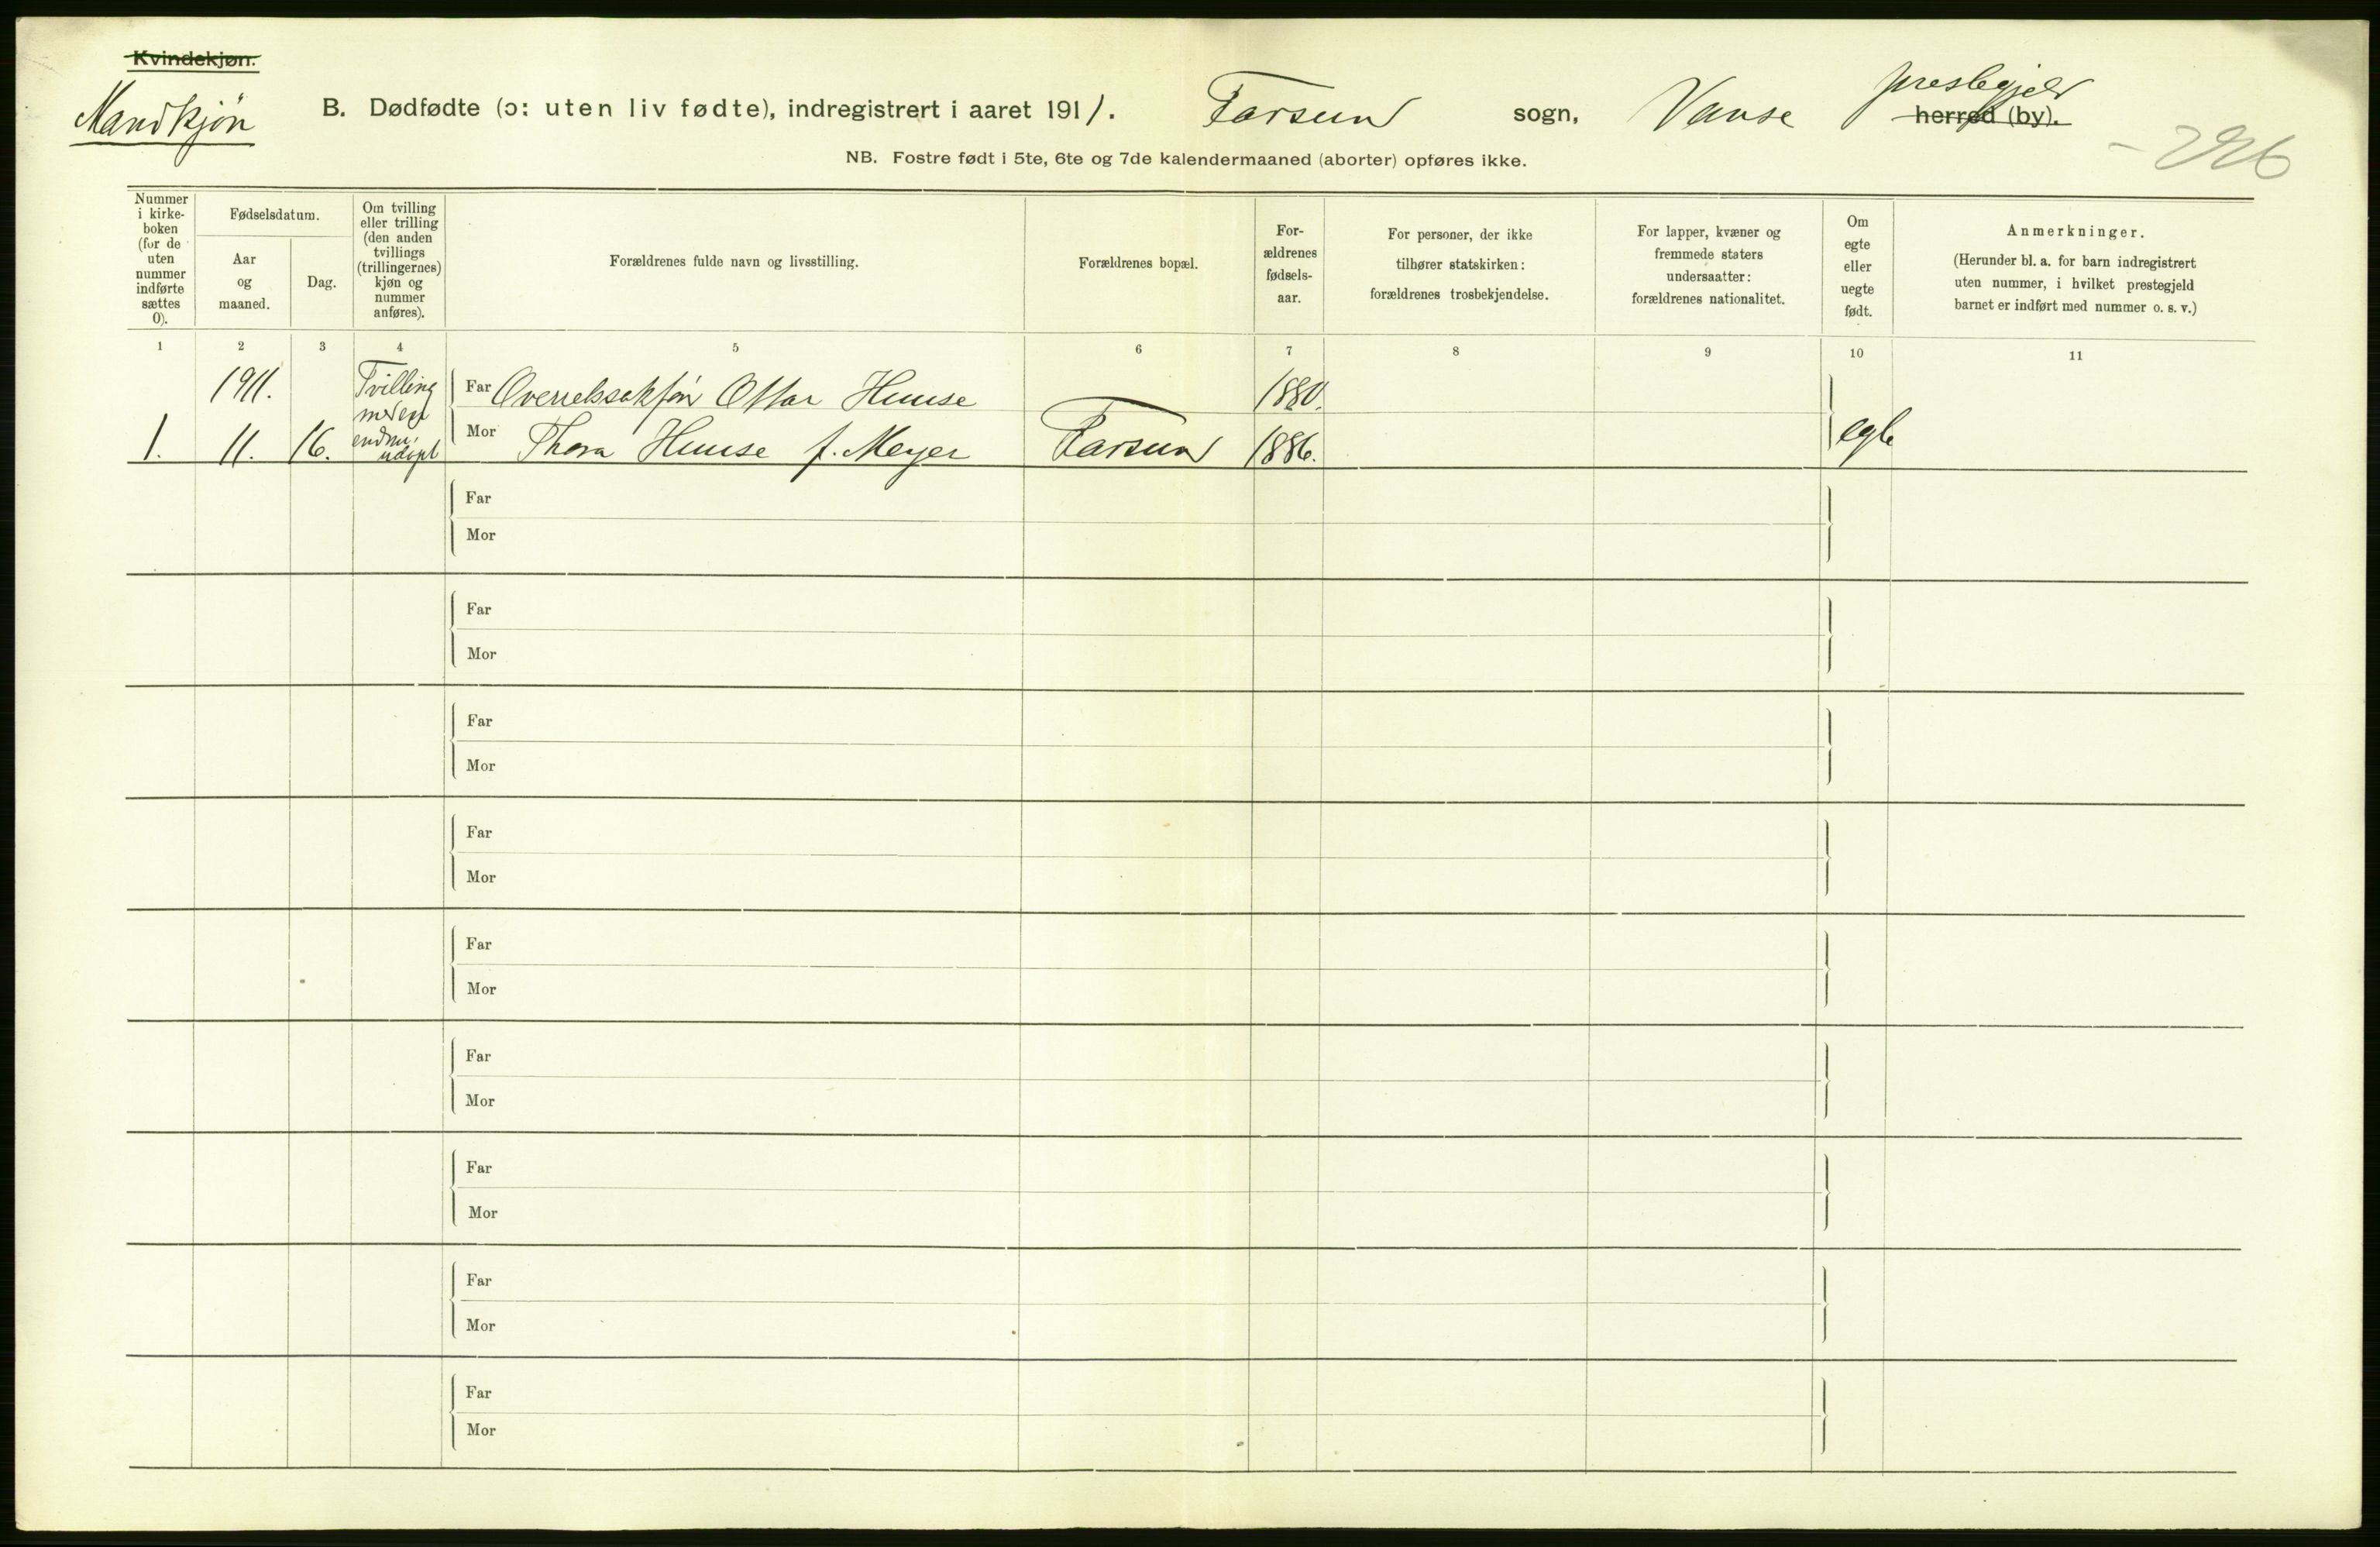 Kvindekjøn.
Mandkjøn
B. Dødfødte (ɔ: uten liv fødte), indregistrert i aaret 1911. Farsund sogn, Vanse prestegjeld herred (by).
NB. Fostre født i 5te, 6te og 7de kalendermaaned (aborter) opføres ikke.
Nummer
i kirke-
boken
(for de
uten
nummer
indførte
sættes
0).
Fødselsdatum.
Aar
og
maaned.
Dag.
Om tvilling
eller trilling
(den anden
tvillings
(trillingernes)
kjøn og
nummer
anføres).
Forældrenes fulde navn og livsstilling.
Forældrenes bopæl.
For-
ældrenes
fødsels-
aar.
For personer, der ikke
tilhører statskirken:
forældrenes trosbekjendelse.
For lapper, kvæner og
fremmede staters
undersaatter:
forældrenes nationalitet.
Om
egte
eller
uegte
født.
Anmerkninger.
(Herunder bl. a. for barn indregistrert
uten nummer, i hvilket prestegjeld
barnet er indført med nummer o. s. v.)
1 2 3 4 5 6 7 8 9 10 11
1911. Tvilling Far Overretssakfør Ottar Huuse 1880.
med en
1. 11. 16. endnu udøpt Mor Thora Huuse f. Meyer Farsund 1886. egte
Far
Mor
Far
Mor
Far
Mor
Far
Mor
Far
Mor
Far
Mor
Far
Mor
Far
Mor
Far
Mor